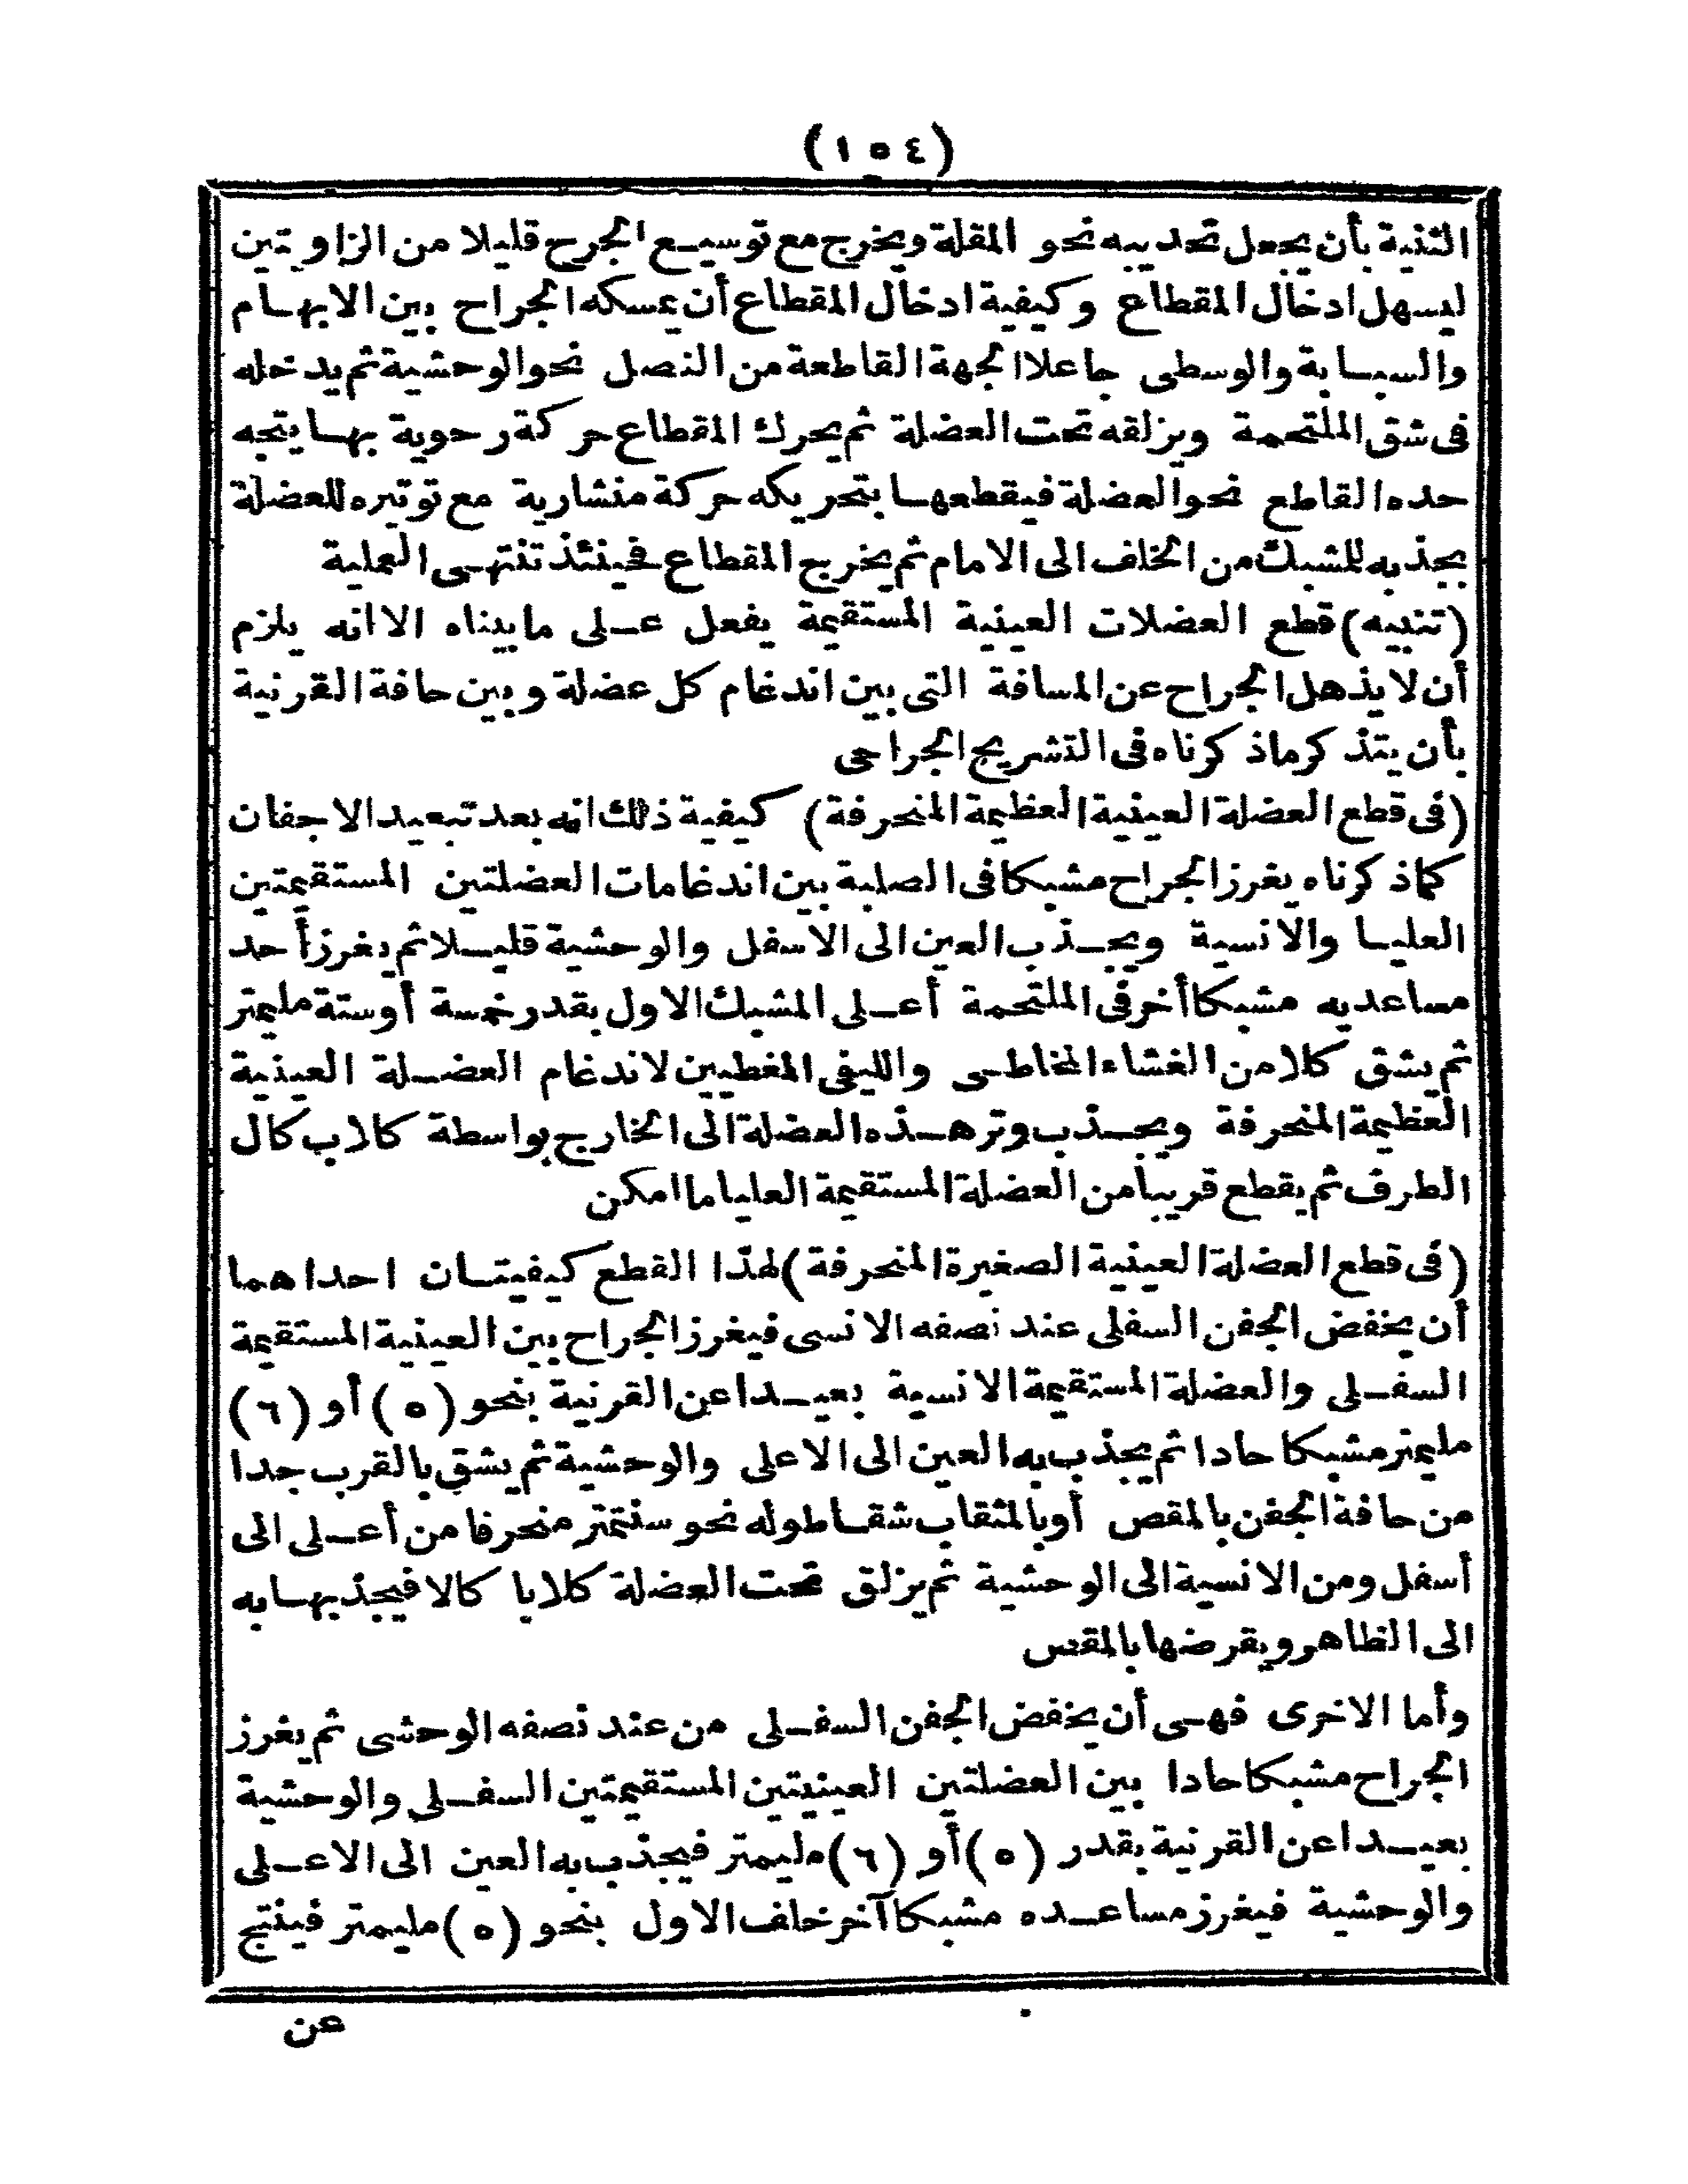 (١٥٤)
الثنية بأن يجعل تحديبه نحو المقلة ويخرج مع توسيع الجرح قليلا من الزاويتين
ليسهل ادخال المقطاع وكيفية ادخال المقطاع أن يمسكه الجراح بين الابهام
والسبابة والوسطى جاعلا الجهة القاطعة من النصل نحو الوحشية ثم يدخله
فى شق الملتحمة ويزلقه تحت العضلة ثم يحرك المقطاع حركة رحوية بها يتجه
حده القاطع نحو العضلة فيقطعها بتحريكه حركة منشارية مع توتيره للعضلة
بجذبه للشبك من الخلف الى الامام ثم يخرج المقطاع فينئذ تنتهى العملية
(تنبيه) قطع العضلات العينية المستقيمة يفعل على ما بيناه الا انه يلزم
أن لا يذهل الجراح عن المسافة التى بين اندغام كل عضلة وبين حافة القرنية
بأن يتذكر ما ذكرناه فى التشريح الجراحى
(فى قطع العضلة العينية العظيمة المنحرفة) كيفية ذلك انه بعد تبعيد الاجفان
كما ذكرناه يغرز الجراح مشبكا فى الصلبة بين اندغامات العضلتين المستقيمتين
العليا والانسية ويجذب العين الى الاسفل والوحشية قليلا ثم يغرز أحد
مساعديه مشبكا أخر فى الملتحمة أعلى المشبك الاول بقدر خمسة أوستة مليمتر
ثم يشق كلا من الغشاء المخاطى والليفى المغطيين لاندغام العضلة العينية
العظيمة المنحرفة ويجذب وتر هذه العضلة الى الخارج بواسطة كلاب كال
الطرف ثم يقطع قريبا من العضلة المستقيمة العليا ما امكن
(فى قطع العضلة العينية الصغيرة المنحرفة) لهذا القطع كيفيتان احداهما
أن يخفض الجفن السفلى عند نصفه الانسى فيغرز الجراح بين العينية المستقيمة
السفلى والعضلة المستقيمة الانسية بعيدا عن القرنية بنحو (٥) أو (٦)
مليمتر مشبكا حادا ثم يجذب به العين الى الاعلى والوحشية ثم يشق بالقرب جدا
من حافة الجفن بالمقص أو بالمثقاب شقا طوله نحو سنتمتر منحرفا من أعلى الى
أسفل ومن الانسية الى الوحشية ثم يزلق تحت العضلة كلابا كالا فيجذبها به
الى الظاهر ويقرضها بالمقص
وأما الاخرى فهى أن يخفض الجفن السفلى من عند نصفه الوحشى ثم يغرز
الجراح مشبكا حادا بين العضلتين العينيتين المستقيمتين السفلى والوحشية
بعيدا عن القرنية بقدر (٥) أو (٦) مليمتر فيجذب به العين الى الاعلى
والوحشية فيغرز مساعده مشبكا آخر خلف الاول بنحو (٥) مليمتر فينتج
عن